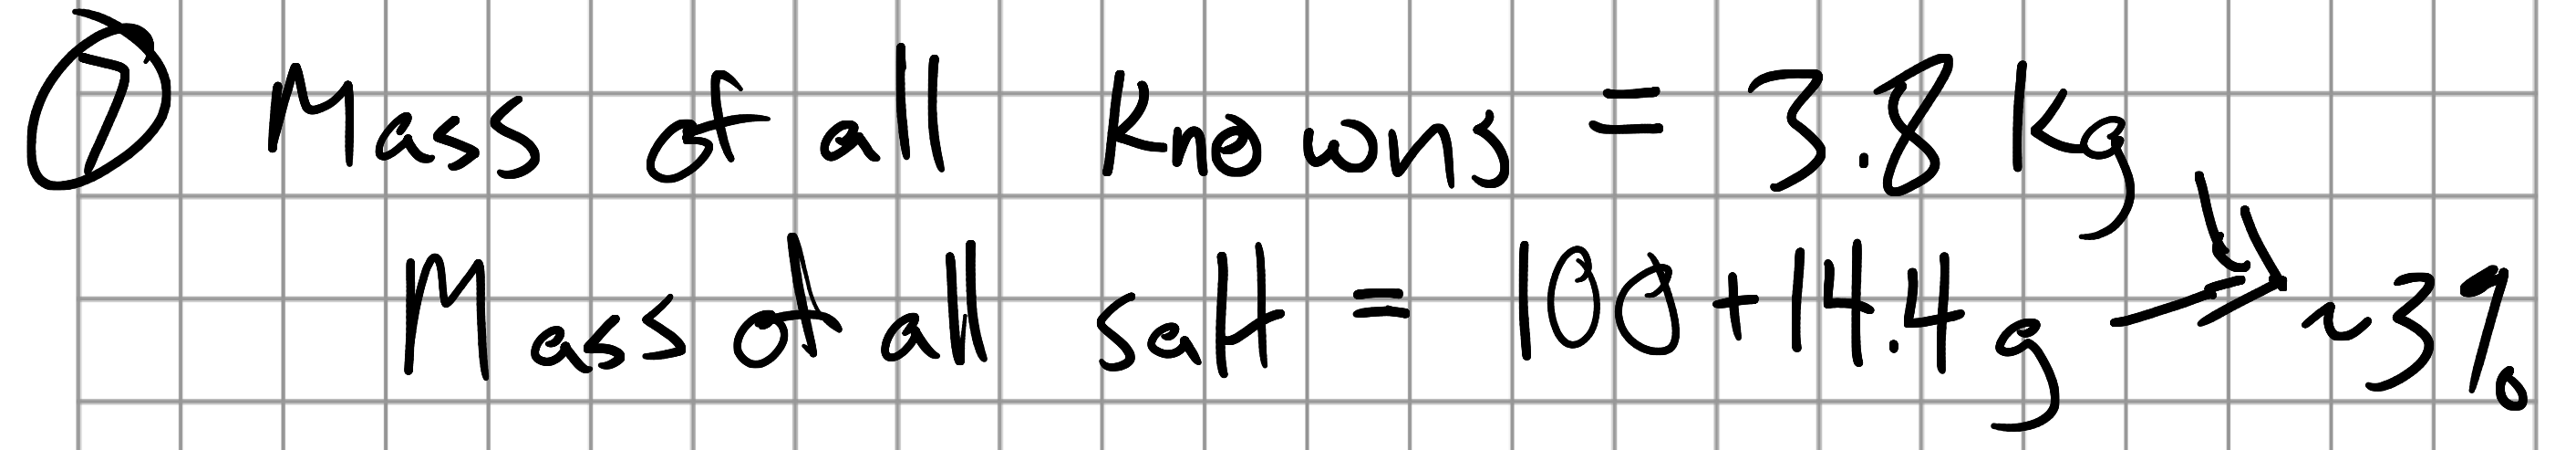 ⑦ Mass of all Knowns = 3.8 Kg
Mass of all salt = 100+14.4 g → ~3%